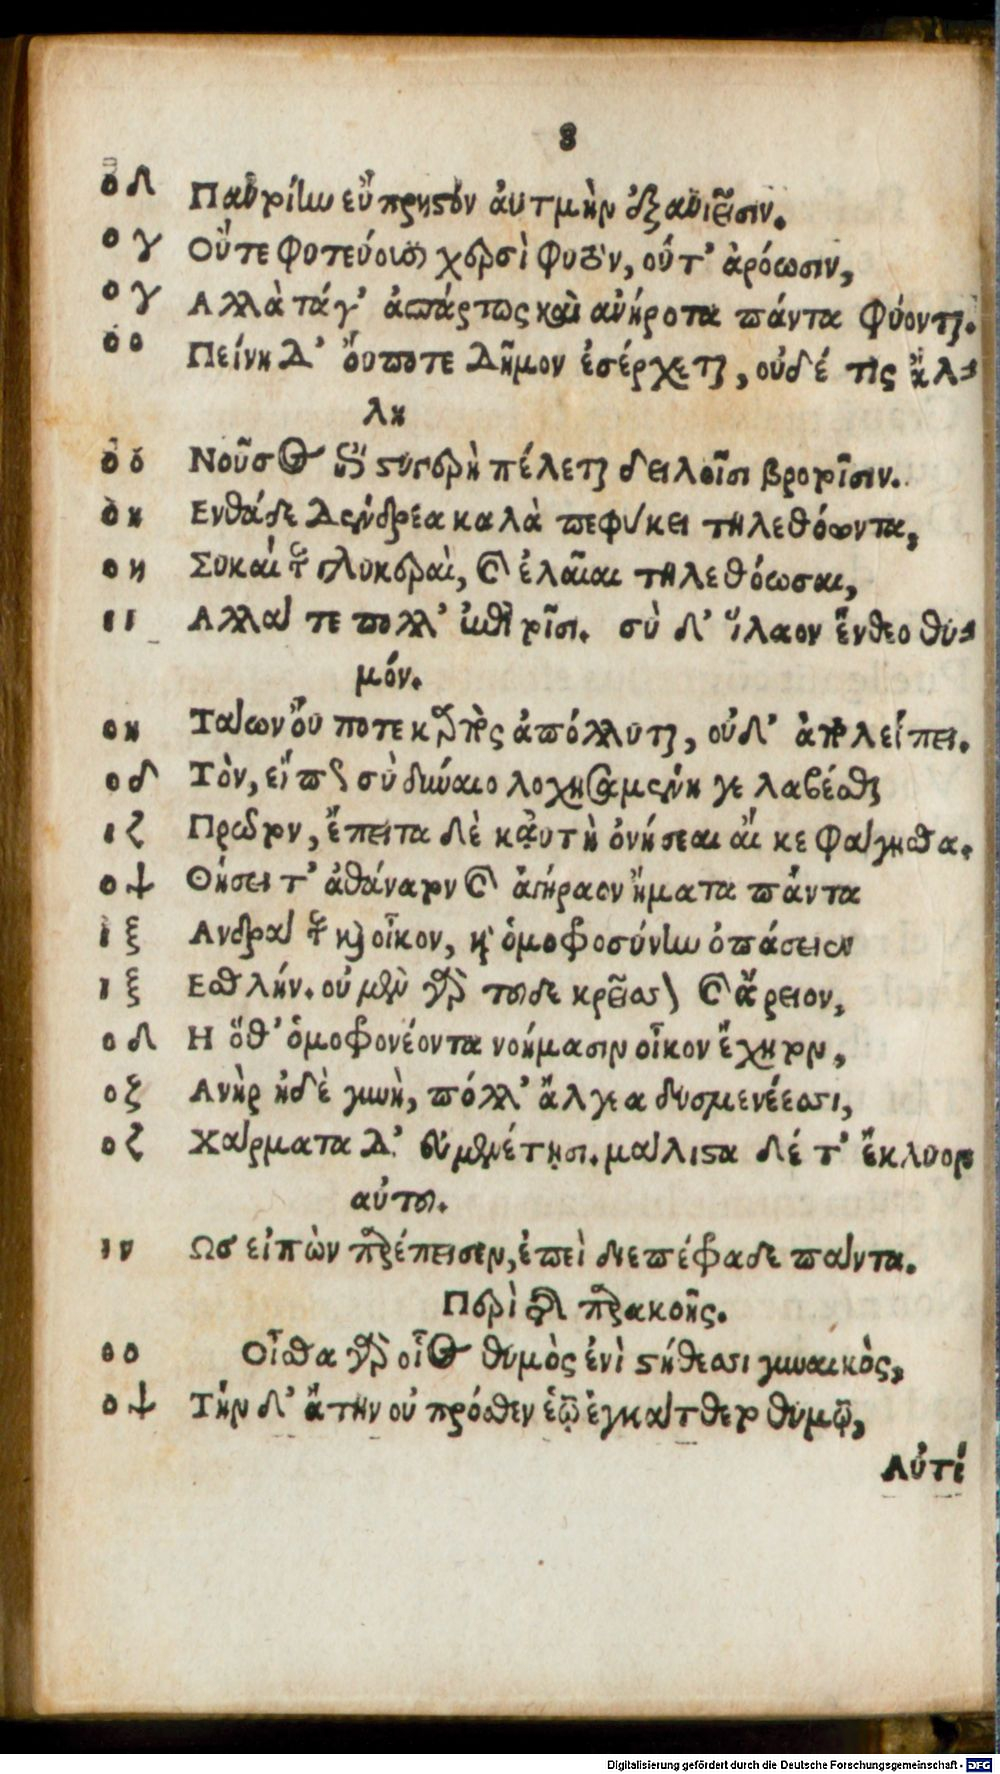 8
οδ Παντοίην εὔπρηστον ἀυτμὴν ἐξανιεῖσιν.
ογ Οὔτε φυτεύουσιν χερσὶ φυτὸν, οὔτ' ἀρόωσιν,
ογ Αλλὰ τάγ' ἀσπάρτως καὶ ἀνήροτα πάντα φύονται.
οο Πείνη δ' ὄυποτε δῆμον ἐσέρχεται, οὐδέ τις ἄλ-
λη
οο Νοῦσος ἐπὶ στυγερὴ πέλεται δειλοῖσι βροτοῖσιν.
οη Ενθάδε δένδρεα καλὰ πεφύκει τηλεθόωντα,
οη Συκαί τε γλυκεραὶ, καὶ ἐλαῖαι τηλεθόωσαι,
ιι Αλλαί τε πολλ' ἐπὶ τοῖσι. σὺ δ' ἵλαον ἔνθεο θυ-
μόν.
οη Τάων ὄυ ποτε καρπὸς ἀπόλλυται, οὐδ' ἀπολείπει.
οδ Τὸν, εἴπως σὺ δύναιο λοχησάμενη γε λαβέσθαι
ιζ Πρῶτον, ἔπειτα δὲ καὐτὴ ὀνήσεαι αἴ κε φάγησθα.
οψ Θήσει τ' ἀθάνατον καὶ ἀγήραον ἤματα πάντα
ιξ Ανδρά τε καὶ οἶκον, καὶ ὁμοφροσύνην ὀπάσειεν
ιξ Εσθλήν. οὐ μὲν γὰρ τοῦδε κρεῖσσον καὶ ἄρειον,
οδ Η ὅθ' ὁμοφρονέοντα νοήμασιν οἶκον ἔχητον,
οζ Ανὴρ ἠδὲ γυνὴ, πόλλ' ἄλγεα δυσμενέεσσι,
οζ Χάρματα δ' εὐμενέτῃσι. μάλιστα δέ τ' ἔκλυον
αὐτοί.
ιν Ως εἰπὼν παρέπεισεν, ἐπεὶ διεπέφραδε πάντα.
Περὶ τῆς παρακοῆς.
οο Οἶσθα γὰρ οἷος θυμὸς ἐνὶ στήθεσσι γυναικὸς,
οψ Τὴν δ' ἄτην οὐ πρόσθεν ἑῷ ἐγκάτθετο θυμῷ,
Αὐτί
Digitalisierung gefördert durch die Deutsche Forschungsgemeinschaft - DFG